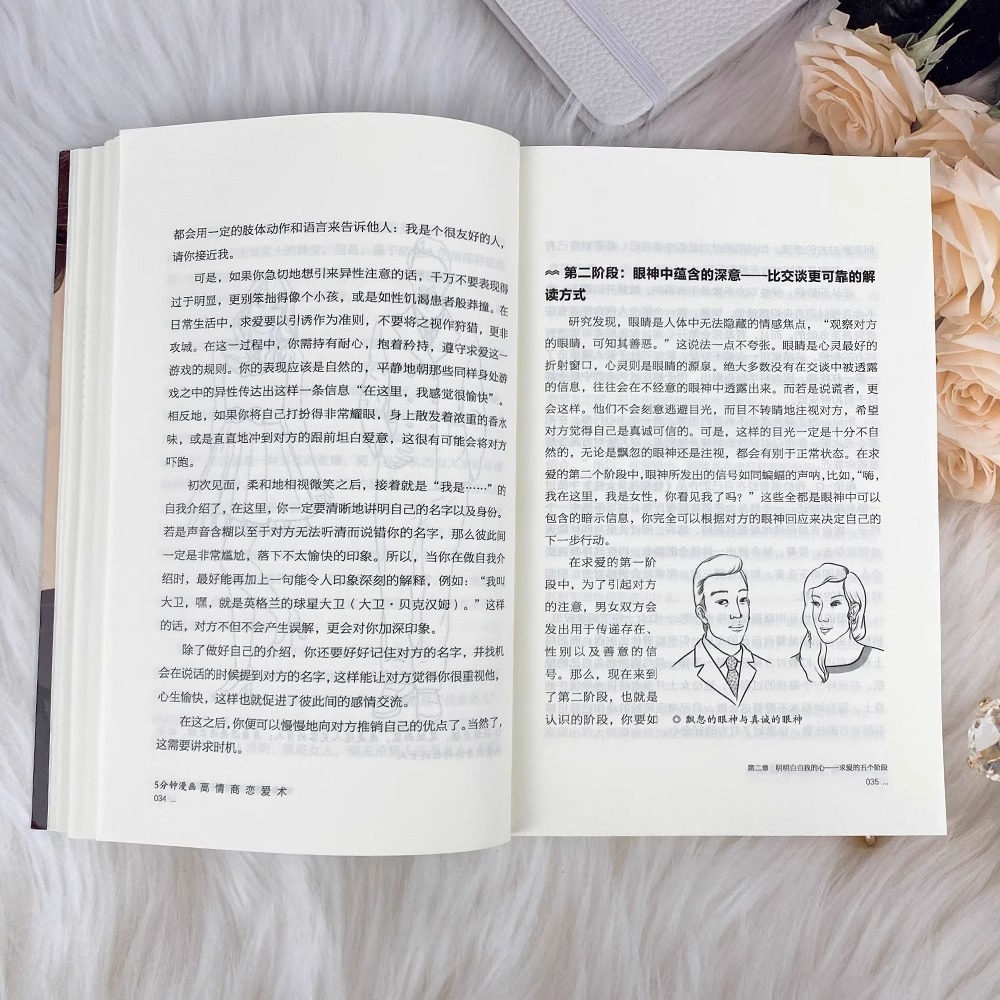 都会用一定的肢体动作和语言来告诉他人：我是个很友好的人，
请你接近我。
可是，如果你急切地想引来异性注意的话，千万不要表现得
过于明显，更别笨拙得像个小孩，或是如性饥渴患者般莽撞。在
日常生活中，求爱要以引诱作为准则，不要将之视作狩猎，更非
攻城。在这一过程中，你需持有耐心，抱着矜持，遵守求爱这一
游戏的规则。你的表现应该是自然的，平静地朝那些同样身处游
戏之中的异性传达出这样一条信息“在这里，我感觉很愉快”。
相反地，如果你将自己打扮得非常耀眼，身上散发着浓重的香水
味，或是直直地冲到对方的跟前坦白爱意，这很有可能会将对方
吓跑。
初次见面，柔和地相视微笑之后，接着就是“我是……”的
自我介绍了，在这里，你一定要清晰地讲明自己的名字以及身份。
若是声音含糊以至于对方无法听清而说错你的名字，那么彼此间
一定是非常尴尬，落下不太愉快的印象。所以，当你在做自我介
绍时，最好能再加上一句能令人印象深刻的解释，例如：“我叫
大卫，嘿，就是英格兰的球星大卫（大卫·贝克汉姆）。”这样
的话，对方不但不会产生误解，更会对你加深印象。
除了做好自己的介绍，你还要好好记住对方的名字，并找机
会在说话的时候提到对方的名字，这样能让对方觉得你很重视他，
心生愉快，这样也就促进了彼此间的感情交流。
在这之后，你便可以慢慢地向对方推销自己的优点了。当然了，
这需要讲求时机。
5分钟漫画高情商恋爱术
034 ...
第二阶段：眼神中蕴含的深意——比交谈更可靠的解
读方式
研究发现，眼睛是人体中无法隐藏的情感焦点，“观察对方
的眼睛，可知其善恶。”这说法一点不夸张。眼睛是心灵最好的
折射窗口，心灵则是眼睛的源泉。绝大多数没有在交谈中被透露
的信息，往往会在不经意的眼神中透露出来。而若是说谎者，更
会这样。他们不会刻意逃避目光，而目不转睛地注视对方，希望
对方觉得自己是真诚可信的。可是，这样的目光一定是十分不自
然的，无论是飘忽的眼神还是注视，都会有别于正常状态。在求
爱的第二个阶段中，眼神所发出的信号如同蝙蝠的声呐，比如，“嗨，
我在这里，我是女性，你看见我了吗？”这些全都是眼神中可以
包含的暗示信息，你完全可以根据对方的眼神回应来决定自己的
下一步行动。
在求爱的第一阶
段中，为了引起对方
的注意，男女双方会
发出用于传递存在、
性别以及善意的信
号。那么，现在来到
了第二阶段，也就是
认识的阶段，你要如
◎ 飘忽的眼神与真诚的眼神
第二章 明明白白我的心——求爱的五个阶段
035 ...